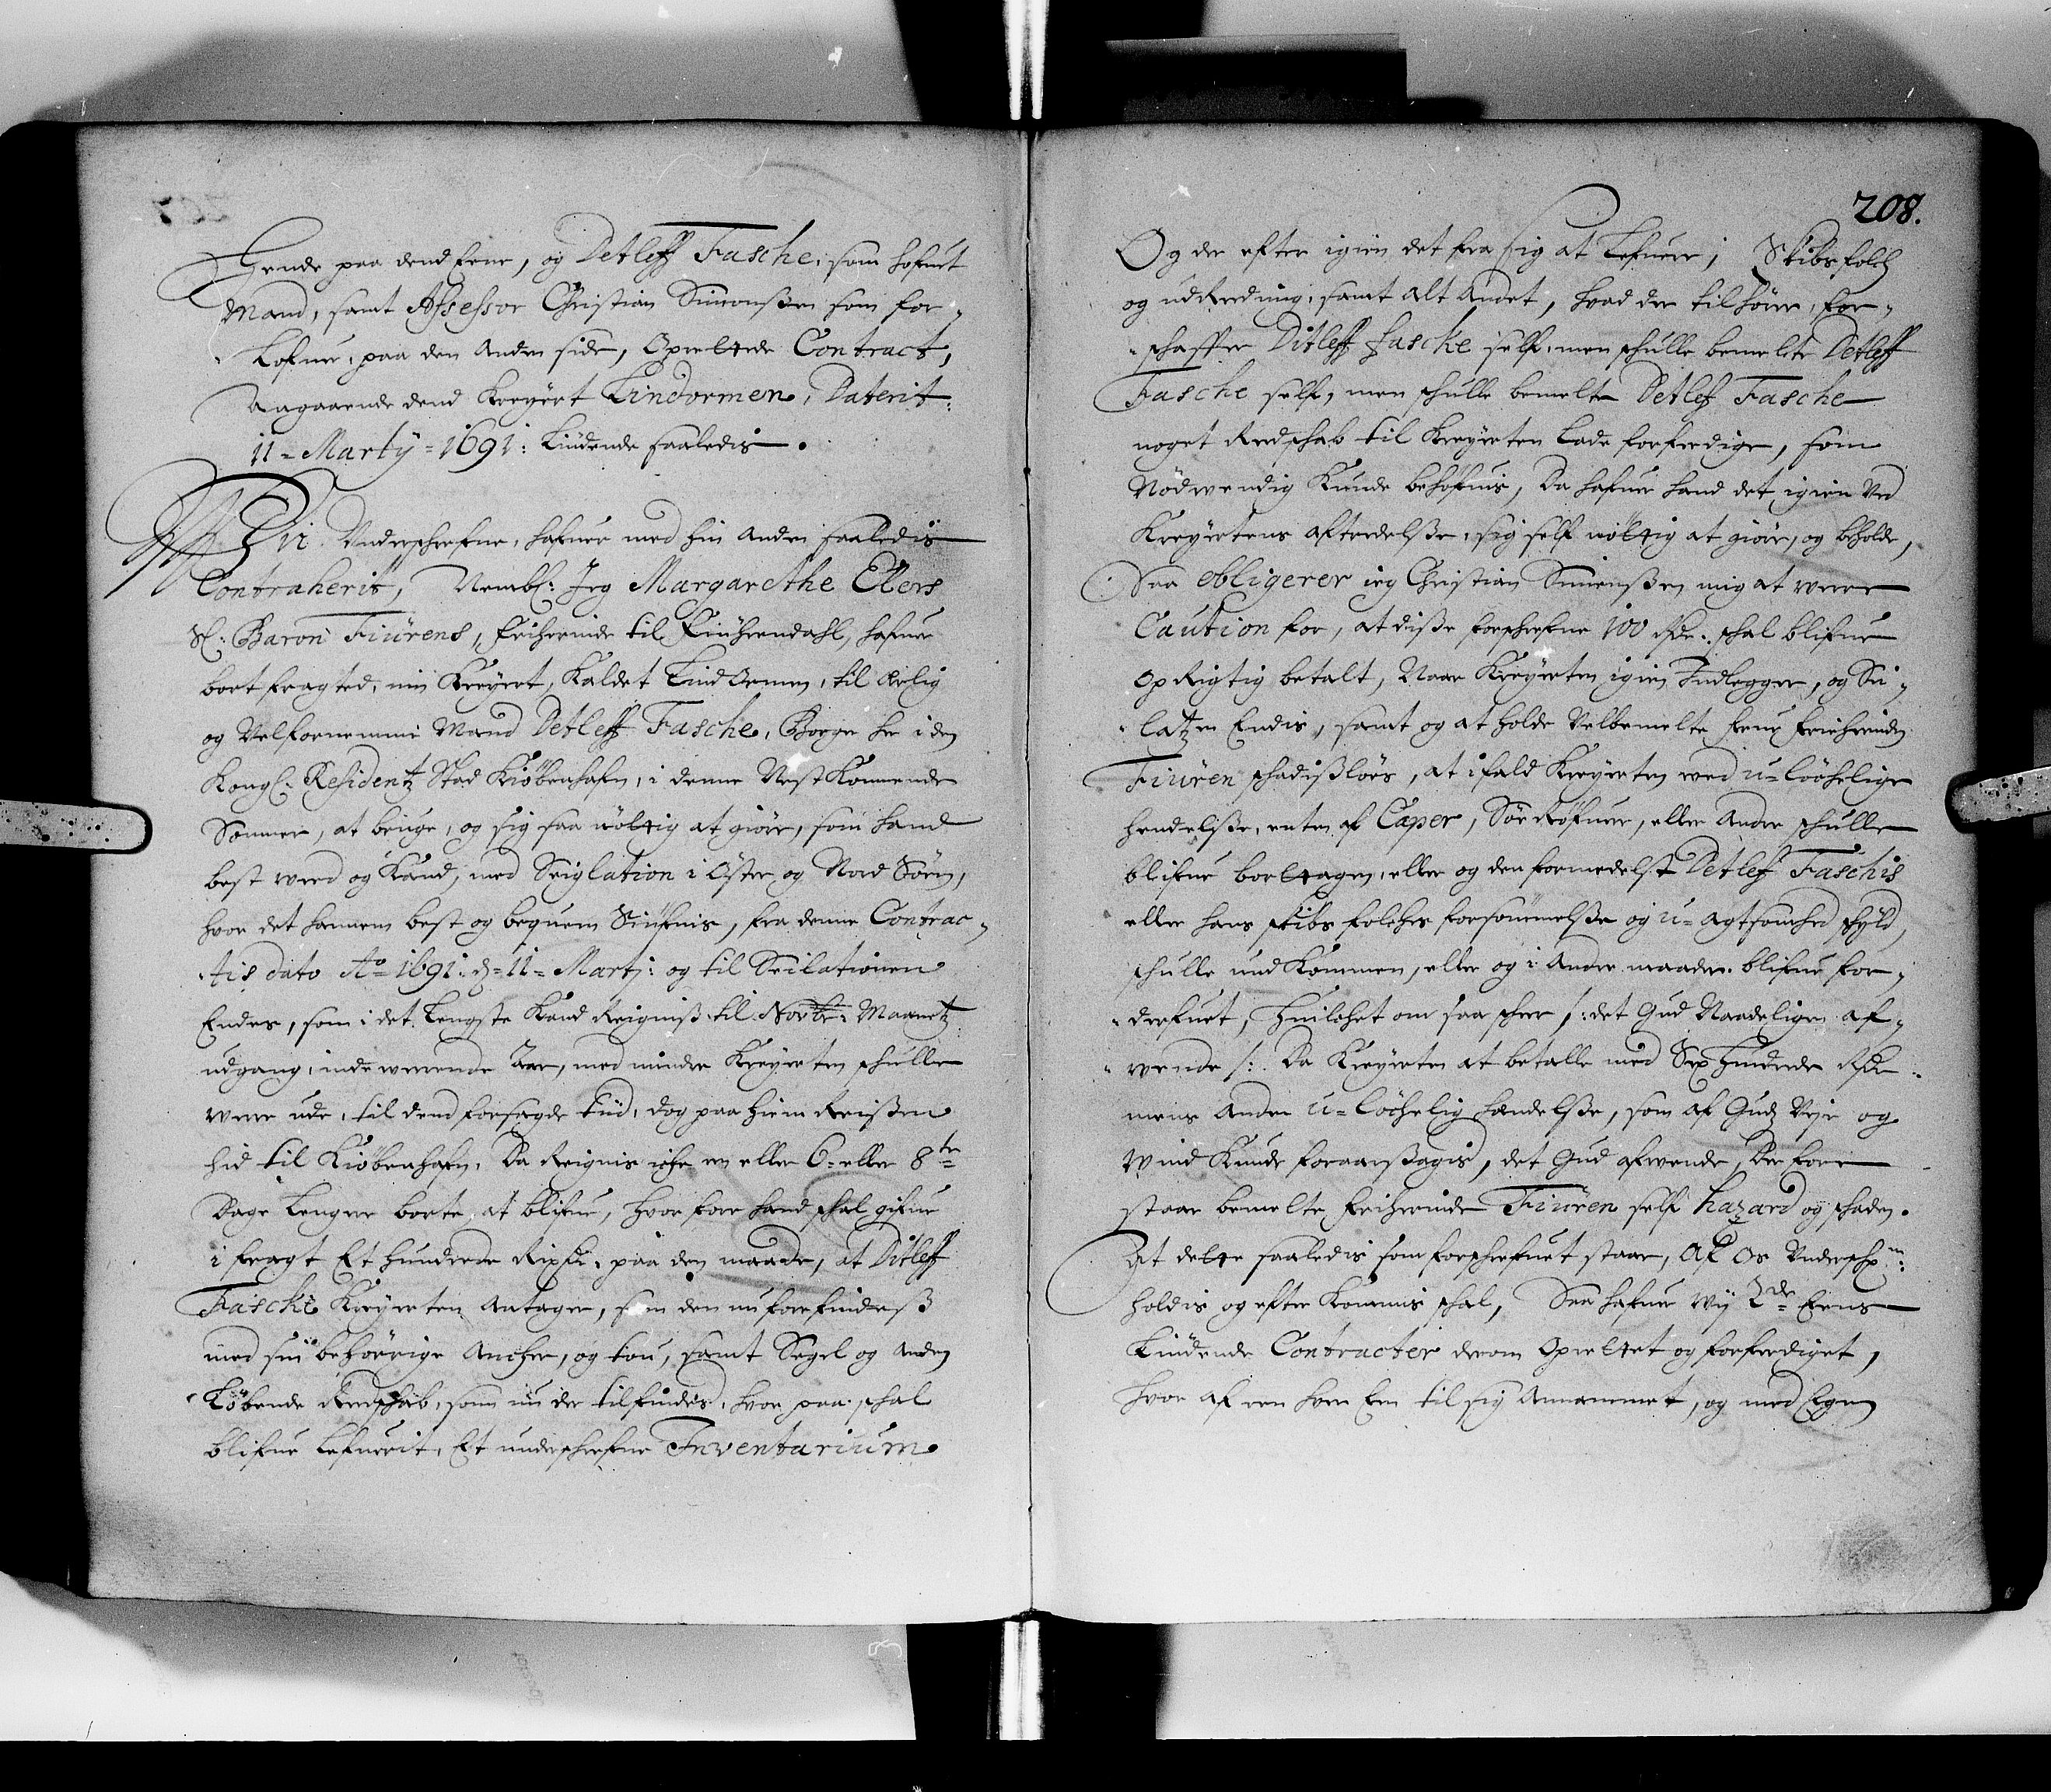 hende paa dend Eene, og Detleff Fasche, som hofuet
Mand, samt Assessor Christian Simonsßen som for-
Lofuer, paa den Anden side, Oprettede Contract,
Angaaende dend Kreyert Lindormen, Daterit
11 = Marty = 1691: Liudende saaledis.
Wii Underschrefne, hafuer med hin Anden saaledis
Contraherit, Nembl: Jeg Margarethe Elers
Sl: Baron Fiurens, friherinde til Fiuhrendahl, hafuer
bort fragted, min Kreyert, Kaldet Lind Ormen, til Ærlig
og Velfornemme Mand Detleff Fasche, Borger her i den
Kongl: Residentz Stad Kiöbenhafn, i denne Nest Kommende
Sommer, at bruge, og sig saa nöttig at giöre, som hand
best weed og Kand, med Seiglation i Öster og Nord Söen,
hvor det hannem best og bequem Siufnis, fra denne Contrac-
tis dato Ao 1691: d: 11 = Martj: og til Seilationen
Endes, som i det Lengste Kand Reigniß til Novbr: Maanetz
udgang, indewerende Aar, med mindre Kreyerten schulle
were ude, til dend forsagde tiid, dog paa hiem Reißen
hid til Kiöbenhafn, Da Reignis iche en eller 6 = eller 8te
Dage Lenger borte at blifue, hvor fore hand schal gifue
i fragt Et hundrede Rixdr: paa den maade, at Ditleff
Faschi Kreyerten Antager, som den nu forefindeß
med sin behörrige Ancher, og tou, samt Segel og Anden
Löbende Redschab, som nu der til findes, hvor paa schal
blifue Lefuerit, Et underschrefne Inventarium
208.
Og der efter igien det fra sig at Lefuere; Skibsfolch
og udRedning, samt alt Andet, hvad der til hörer, for-
schaffer Ditleff Fascke self, men schulle bemelte Detleff
Fasche self, men schulle bemelte Detlef Fasche
noget Redschab til Kreyerten Lade forferdige, som
Nödwendig Kunde behöfuis, Da hafuer hand det igien Ved
Kreyertens aftredelße, sig self nöttig at giöre, og beholde,
Saa obligerer ieg Christian Simonsßen mig at were
Caution for, at diße forschrefne 100 Rdr: schal blifue
opRigtig betalt, Naar Kreyerten igien Indlegger, og Sei-
latzen Endis, samt og at holde Velbemelte frue friherinde
Fiuren schadißlöes, at i fald Kreyerten wed u-löchelige
hendelße, enten af Caper, Sörröfuer, eller Andre schulle
blifue borttagen, eller og den formedelst Detleff Faschis
eller hans skibs folches forsömmelße og u-agtsomhed skyld,
schulle und Kommen, eller og i Andre maader blifue for-
derfuet, Huilchet om saa scheer, /: det Gud Naadeligen af-
wende :/. Da Kreyerten at betalle med Sex hundrede Rdr
mens Anden u-löchelig hendelße, som af Gudz Veje og
Wind Kunde foraarßagis, det Gud afwende, Der fore
staar bemelte friherinde Fiuren self hazard og schaden.
At dette saaledis som forschrefuet staar, Af os Underschr:
holdis og efter Kommis schal, Saa hafuer Wij 2de Eens
Liudende Contracter derom Oprettet og forferdiget,
hvor af een hver Een til sig Annammet, og med Egen